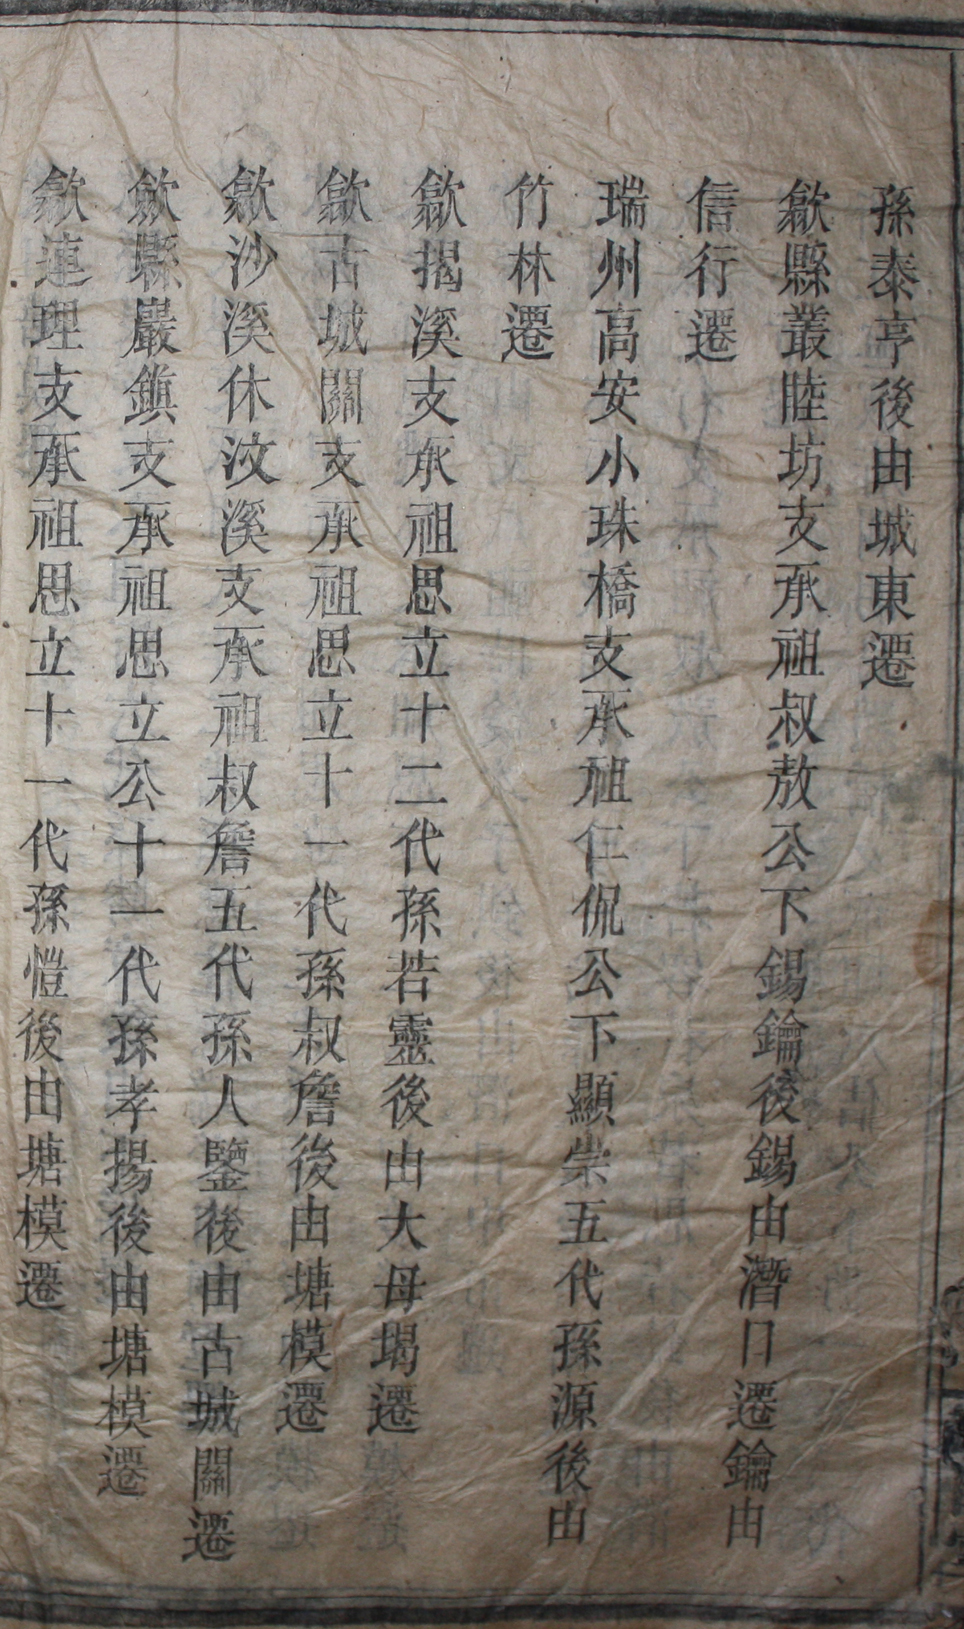 孫泰亨後由城東遷
歙縣叢睦坊支承祖叔敖公下錫鑰後錫由潛口遷鑰由
信行遷
瑞州高安小珠橋支承祖仁侃公下顯崇五代孫源後由
竹林遷
歙揭溪支承祖思立十二代孫若靈後由大母堨遷
歙古城關支承祖思立十一代孫叔詹後由塘模遷
歙沙溪休汶溪支承祖叔詹五代孫人鑒後由古城關遷
歙縣巖鎮支承祖思立公十一代孫孝揚後由塘模遷
歙連理支承祖思立十一代孫愷後由塘模遷